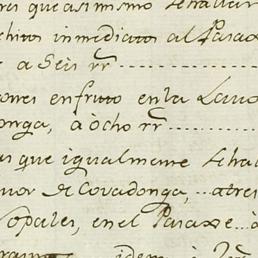 res que asimismo se hallar
chitos inmediato al Parax
e a Seis rr.
ores en fruto en la Lavo
onga, à ocho rr.
as que igualmente se ha
nor de Covadonga, ... a tres
Nopales, en el Paraxe ... à
idem